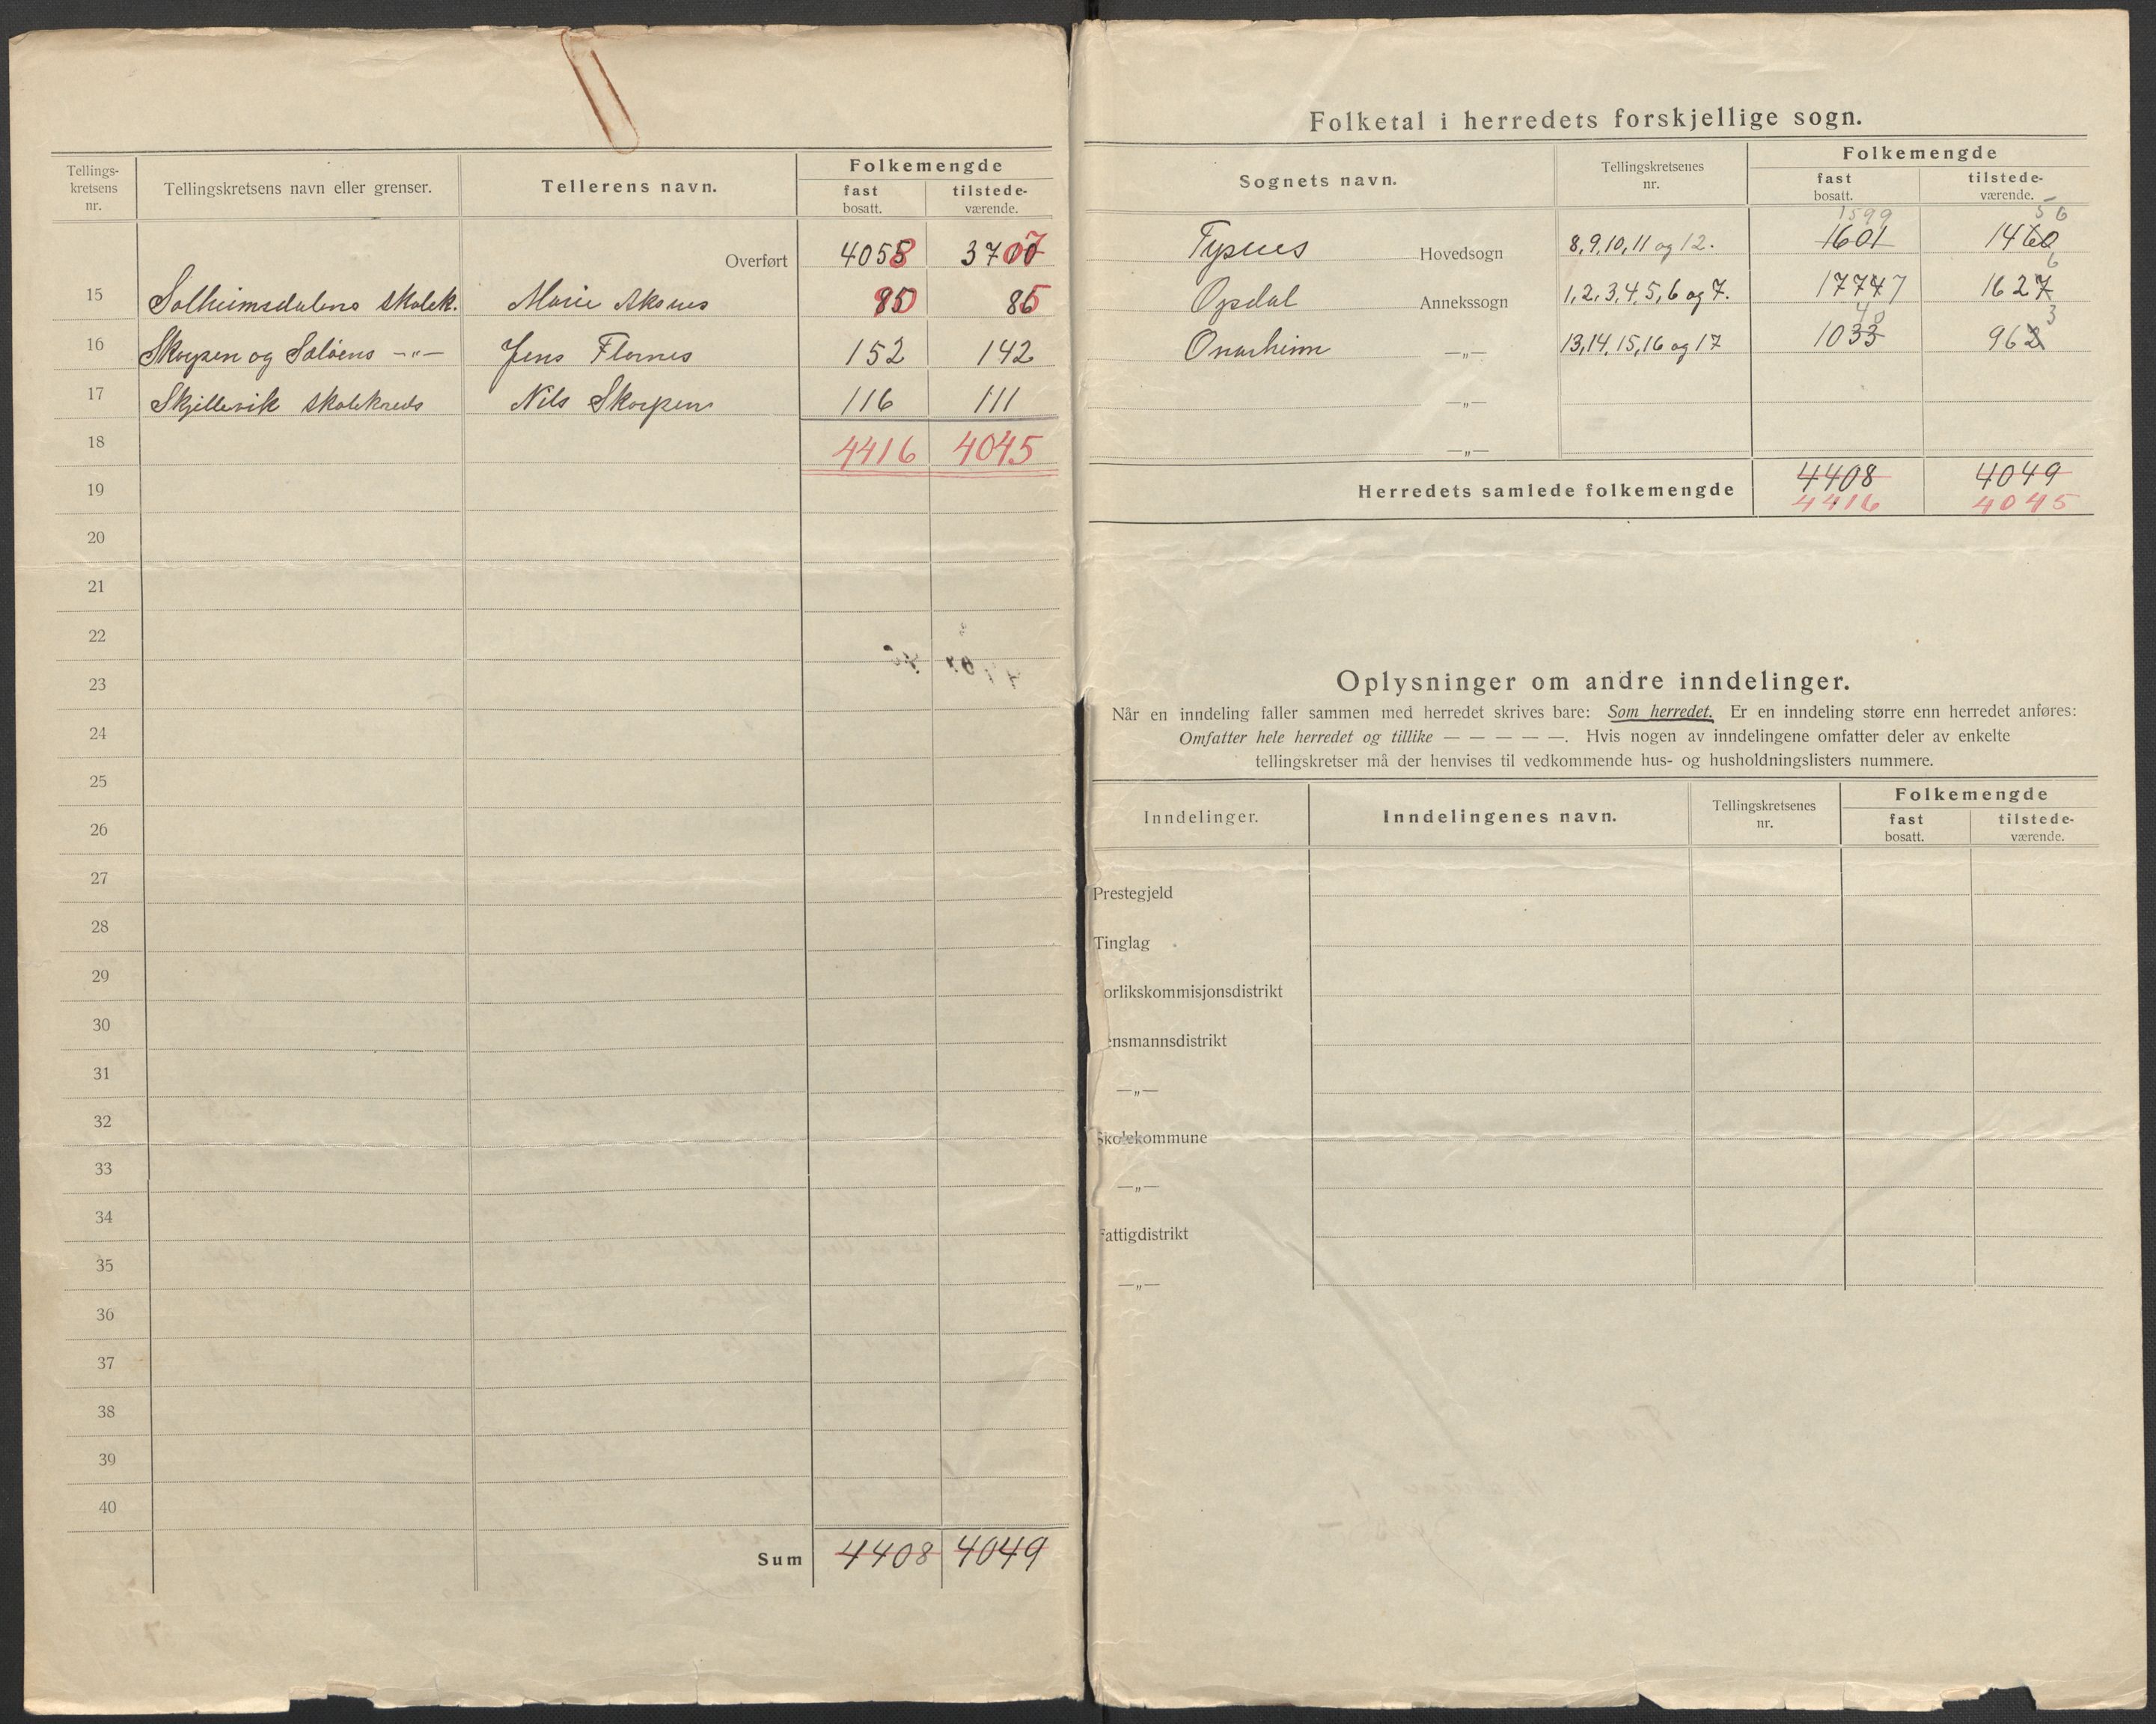 Tellings-
kretsens
nr.
Tellingskretsens navn eller grenser.
Tellerens navn.
Folkemengde
fast
bosatt.
tilstede-
værende.
Overført 4058 3707
15 Solheimsdalens skolek. Marie Aksnes 90 85
16 Skorpen og Saløens —„— Jens Flornes 152 142
17 Skjellevik skolekreds Nils Skorpen 116 111
18 4416 4045
19
20
21
22
23
24
25
26
27
28
29
30
31
32
33
34
35
36
37
38
39
40
Sum 4408 4049
Folketal i herredets forskjellige sogn.
Sognets navn.
Tellingskretsenes
nr.
Folkemengde
fast
bosatt.
tilstede-
værende.
1599 56
Tysnes Hovedsogn 8,9,10,11 og 12. 1601 1460
6
Opdal Annekssogn 1,2,3,4,5,6 og 7. 1774 7 1627
48 3
Onarheim —„— 13,14,15,16 og 17 1033 962
—„—
—„—
Herredets samlede folkemengde 4408 4049
4416 4045
Oplysninger om andre inndelinger.
Når en inndeling faller sammen med herredet skrives bare: Som herredet. Er en inndeling større enn herredet anføres:
Omfatter hele herredet og tillike — — — — —. Hvis nogen av inndelingene omfatter deler av enkelte
tellingskretser må der henvises til vedkommende hus- og husholdningslisters nummere.
Inndelinger.
Inndelingenes navn.
Tellingskretsenes
nr.
Folkemengde
fast
bosatt.
tilstede-
værende.
Prestegjeld
Tinglag
orlikskommisjonsdistrikt
ensmannsdistrikt
—„—
Skolekommune
—„—
Fattigdistrikt
—„—